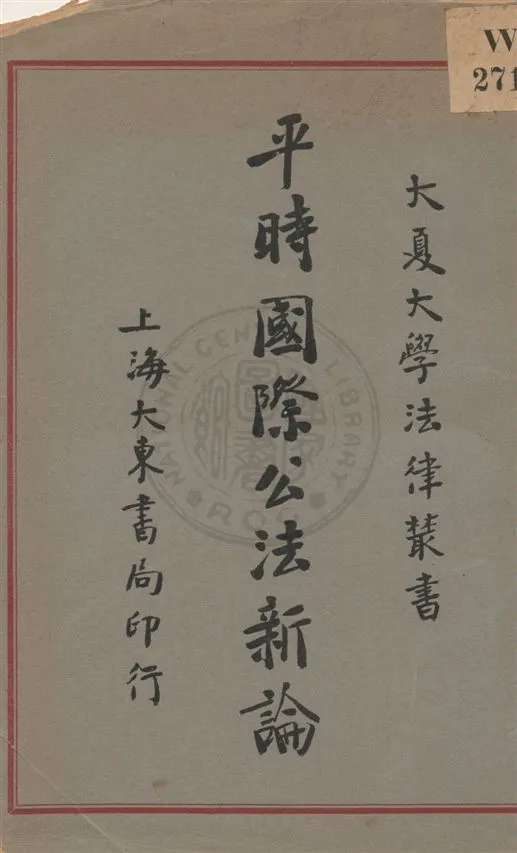 大夏大學法律叢書
平時國際公法新論
上海大東書局印行
W
271
NATIONAL CENTRAL LIBRARY
ROC